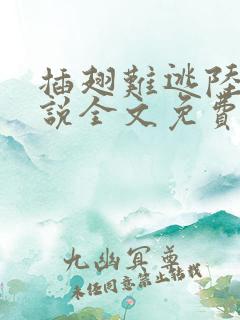 插翅難逃陸
說全文免費
九幽冥尊
未经同意禁止转载